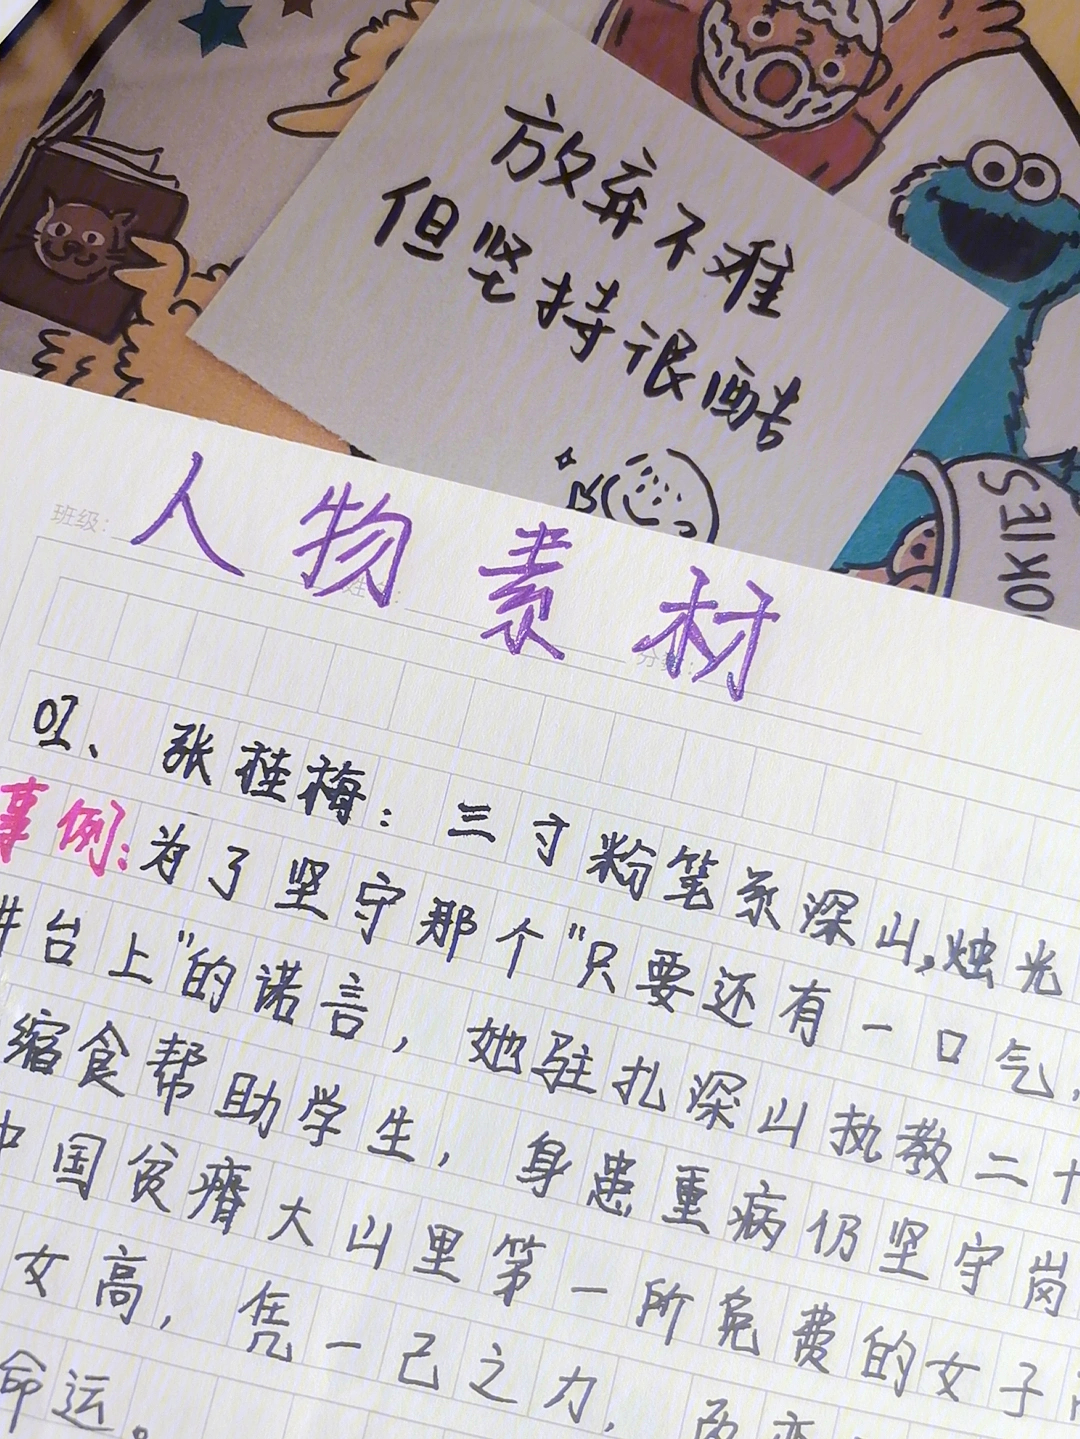 放弃不难
但坚持很酷
OKIES
人物素材
班级：
01、张桂梅：三寸粉笔系深山，烛光
事例：为了坚守那个"只要还有一口气，
讲台上"的诺言，她驻扎深山执教二十
缩食帮助学生，身患重病仍坚守岗
中国贫瘠大山里第一所免费的女子高
女高，凭一己之力，改变
命运。